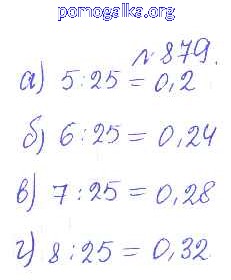 pomogalka.org
№879.
а) 5:25=0,2
б) 6:25=0,24
в) 7:25=0,28
г) 8:25=0,32